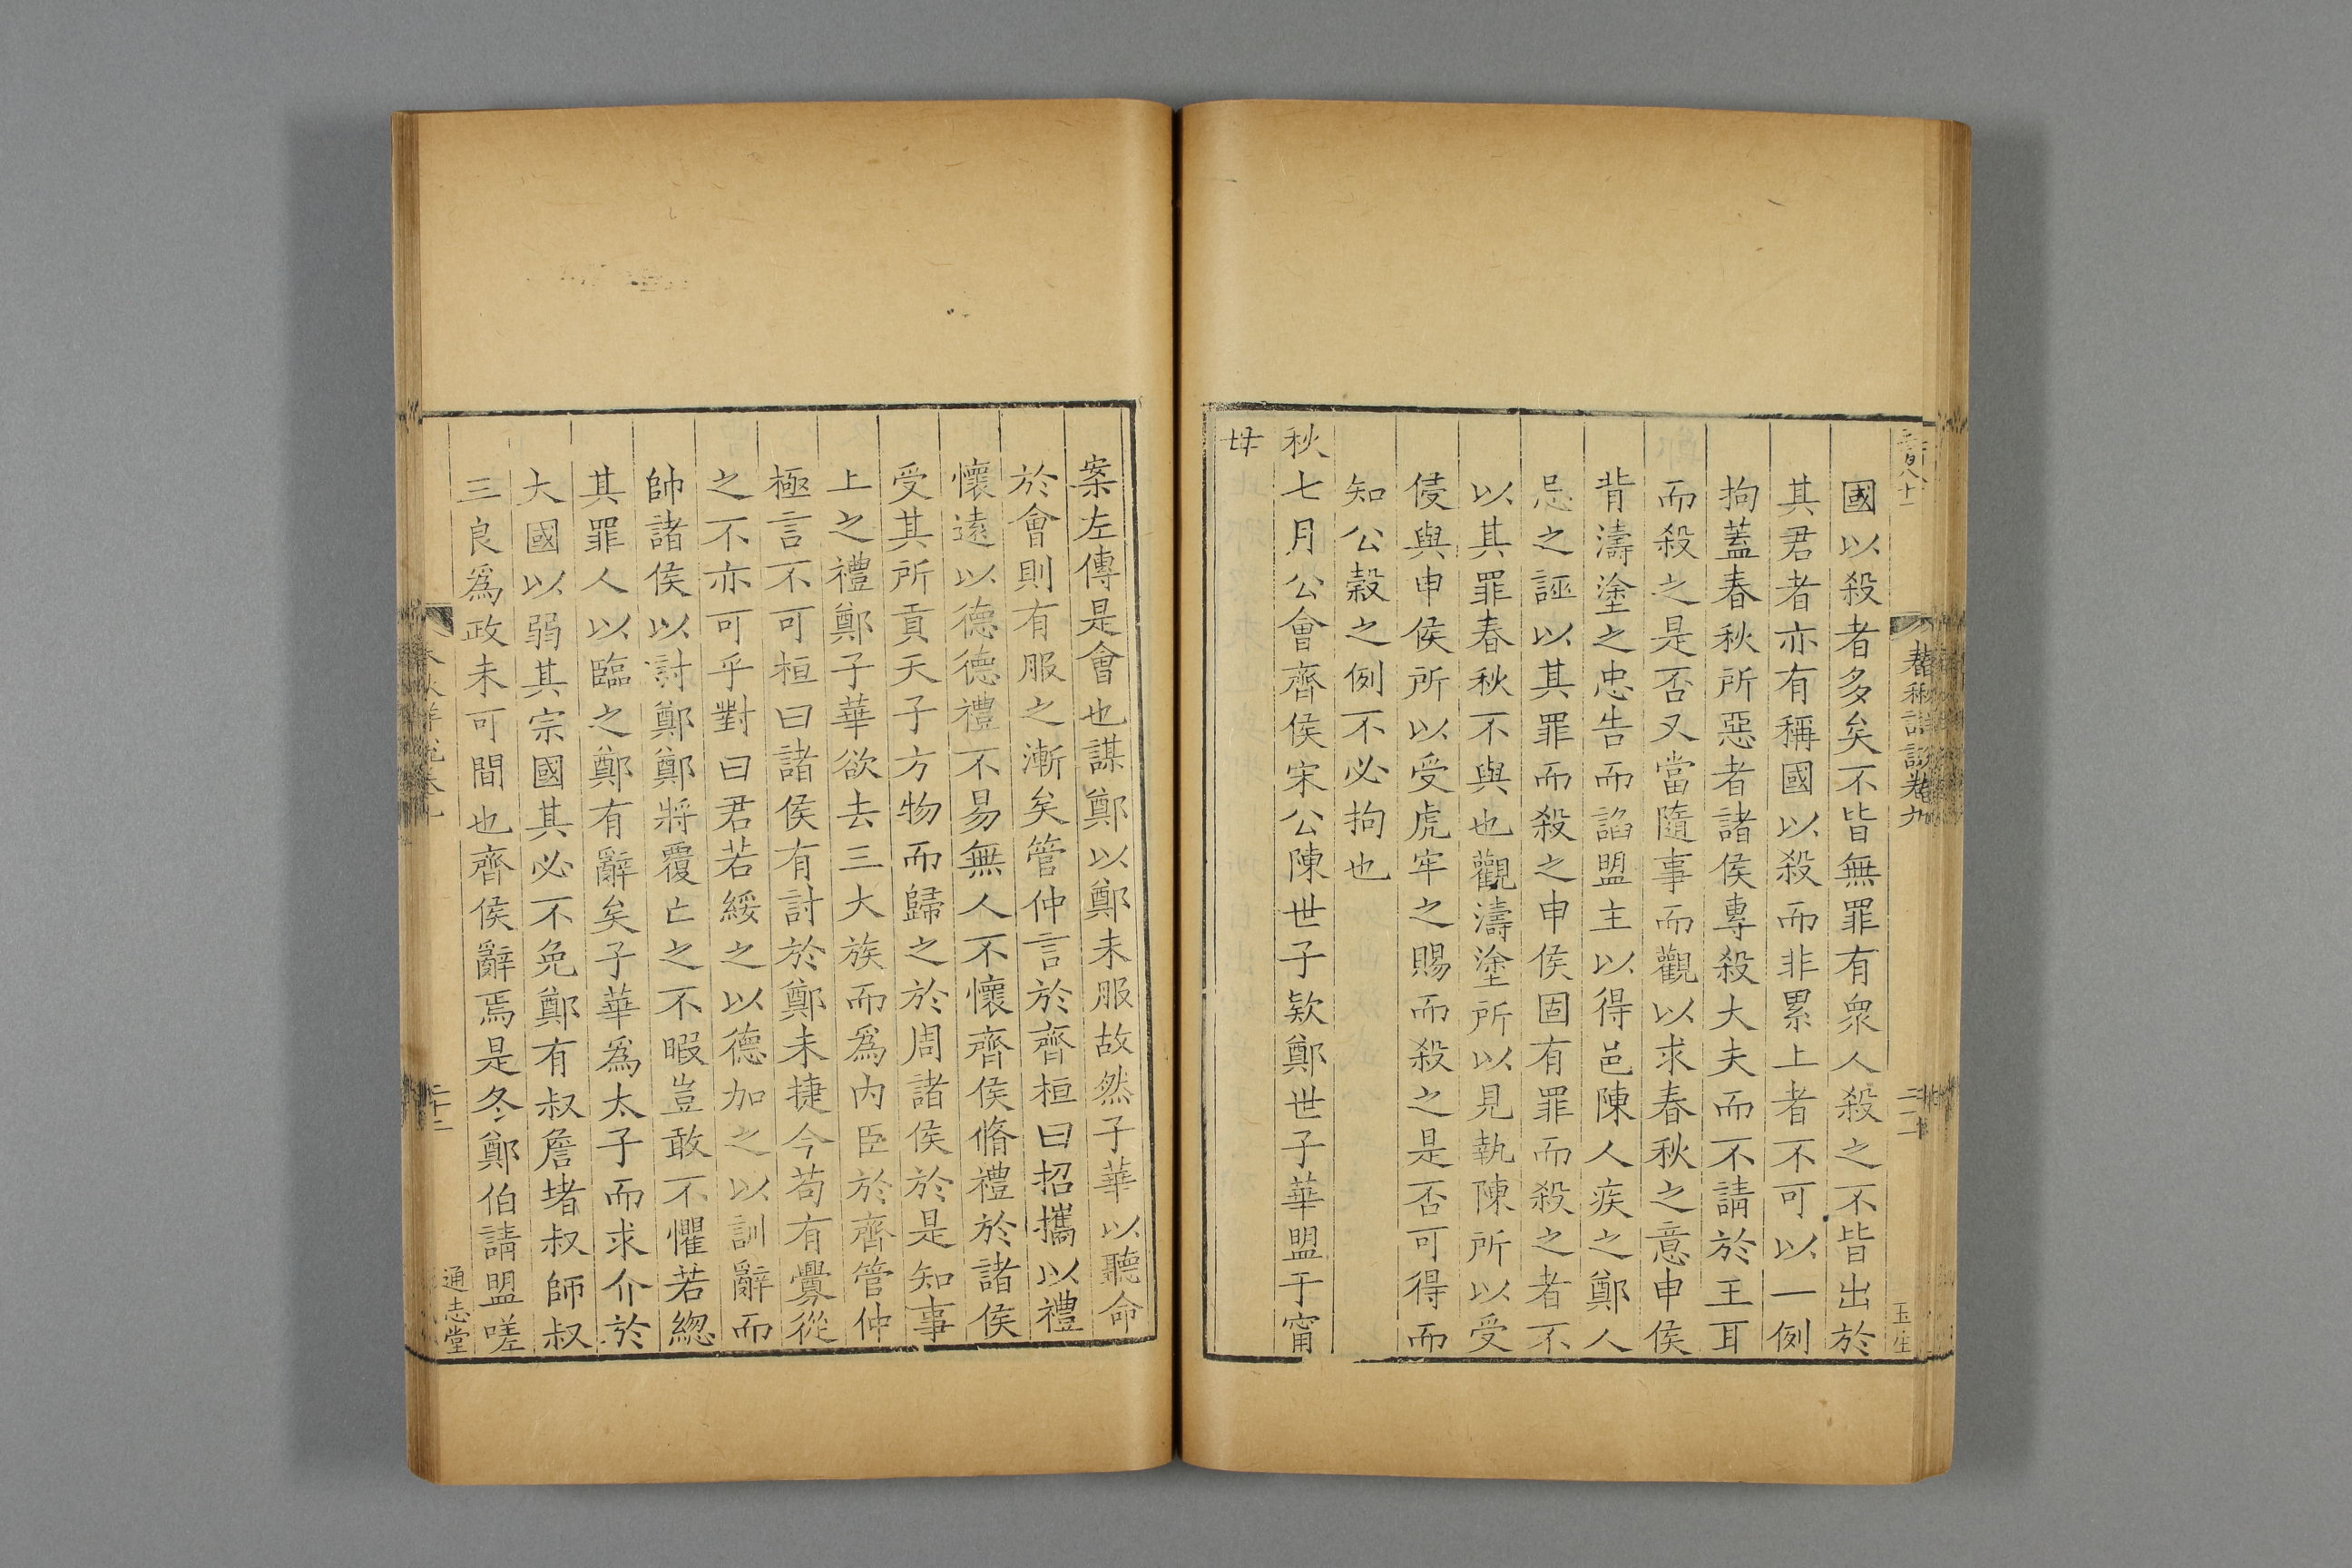 春秋詳說卷九
玉生
國以殺者多矣不皆無罪有衆人殺之不皆出於
其君者亦有稱國以殺而非累上者不可以一例
拘蓋春秋所惡者諸侯專殺大夫而不請於王耳
而殺之是否又當隨事而觀以求春秋之意申侯
背濤塗之忠告而諂盟主以得邑陳人疾之鄭人
忌之誣以其罪而殺之申侯固有罪而殺之者不
以其罪春秋不與也觀濤塗所以見執陳所以受
侵與申侯所以受虎牢之賜而殺之是否可得而
知公穀之例不必拘也
秋七月公會齊侯宋公陳世子款鄭世子華盟于甯
毋
案左傳是會也謀鄭以鄭未服故然子華以聽命
於會則有服之漸矣管仲言於齊桓曰招攜以禮
懷遠以德德禮不易無人不懷齊侯脩禮於諸侯
受其所貢天子方物而歸之於周諸侯於是知事
上之禮鄭子華欲去三大族而爲內臣於齊管仲
極言不可桓曰諸侯有討於鄭未捷今苟有釁從
之不亦可乎對曰君若綏之以德加之以訓辭而
帥諸侯以討鄭鄭將覆亡之不暇豈敢不懼若緫
其罪人以臨之鄭有辭矣子華爲太子而求介於
大國以弱其宗國其必不免鄭有叔詹堵叔師叔
三良爲政未可間也齊侯辭焉是冬鄭伯請盟嗟
通志堂